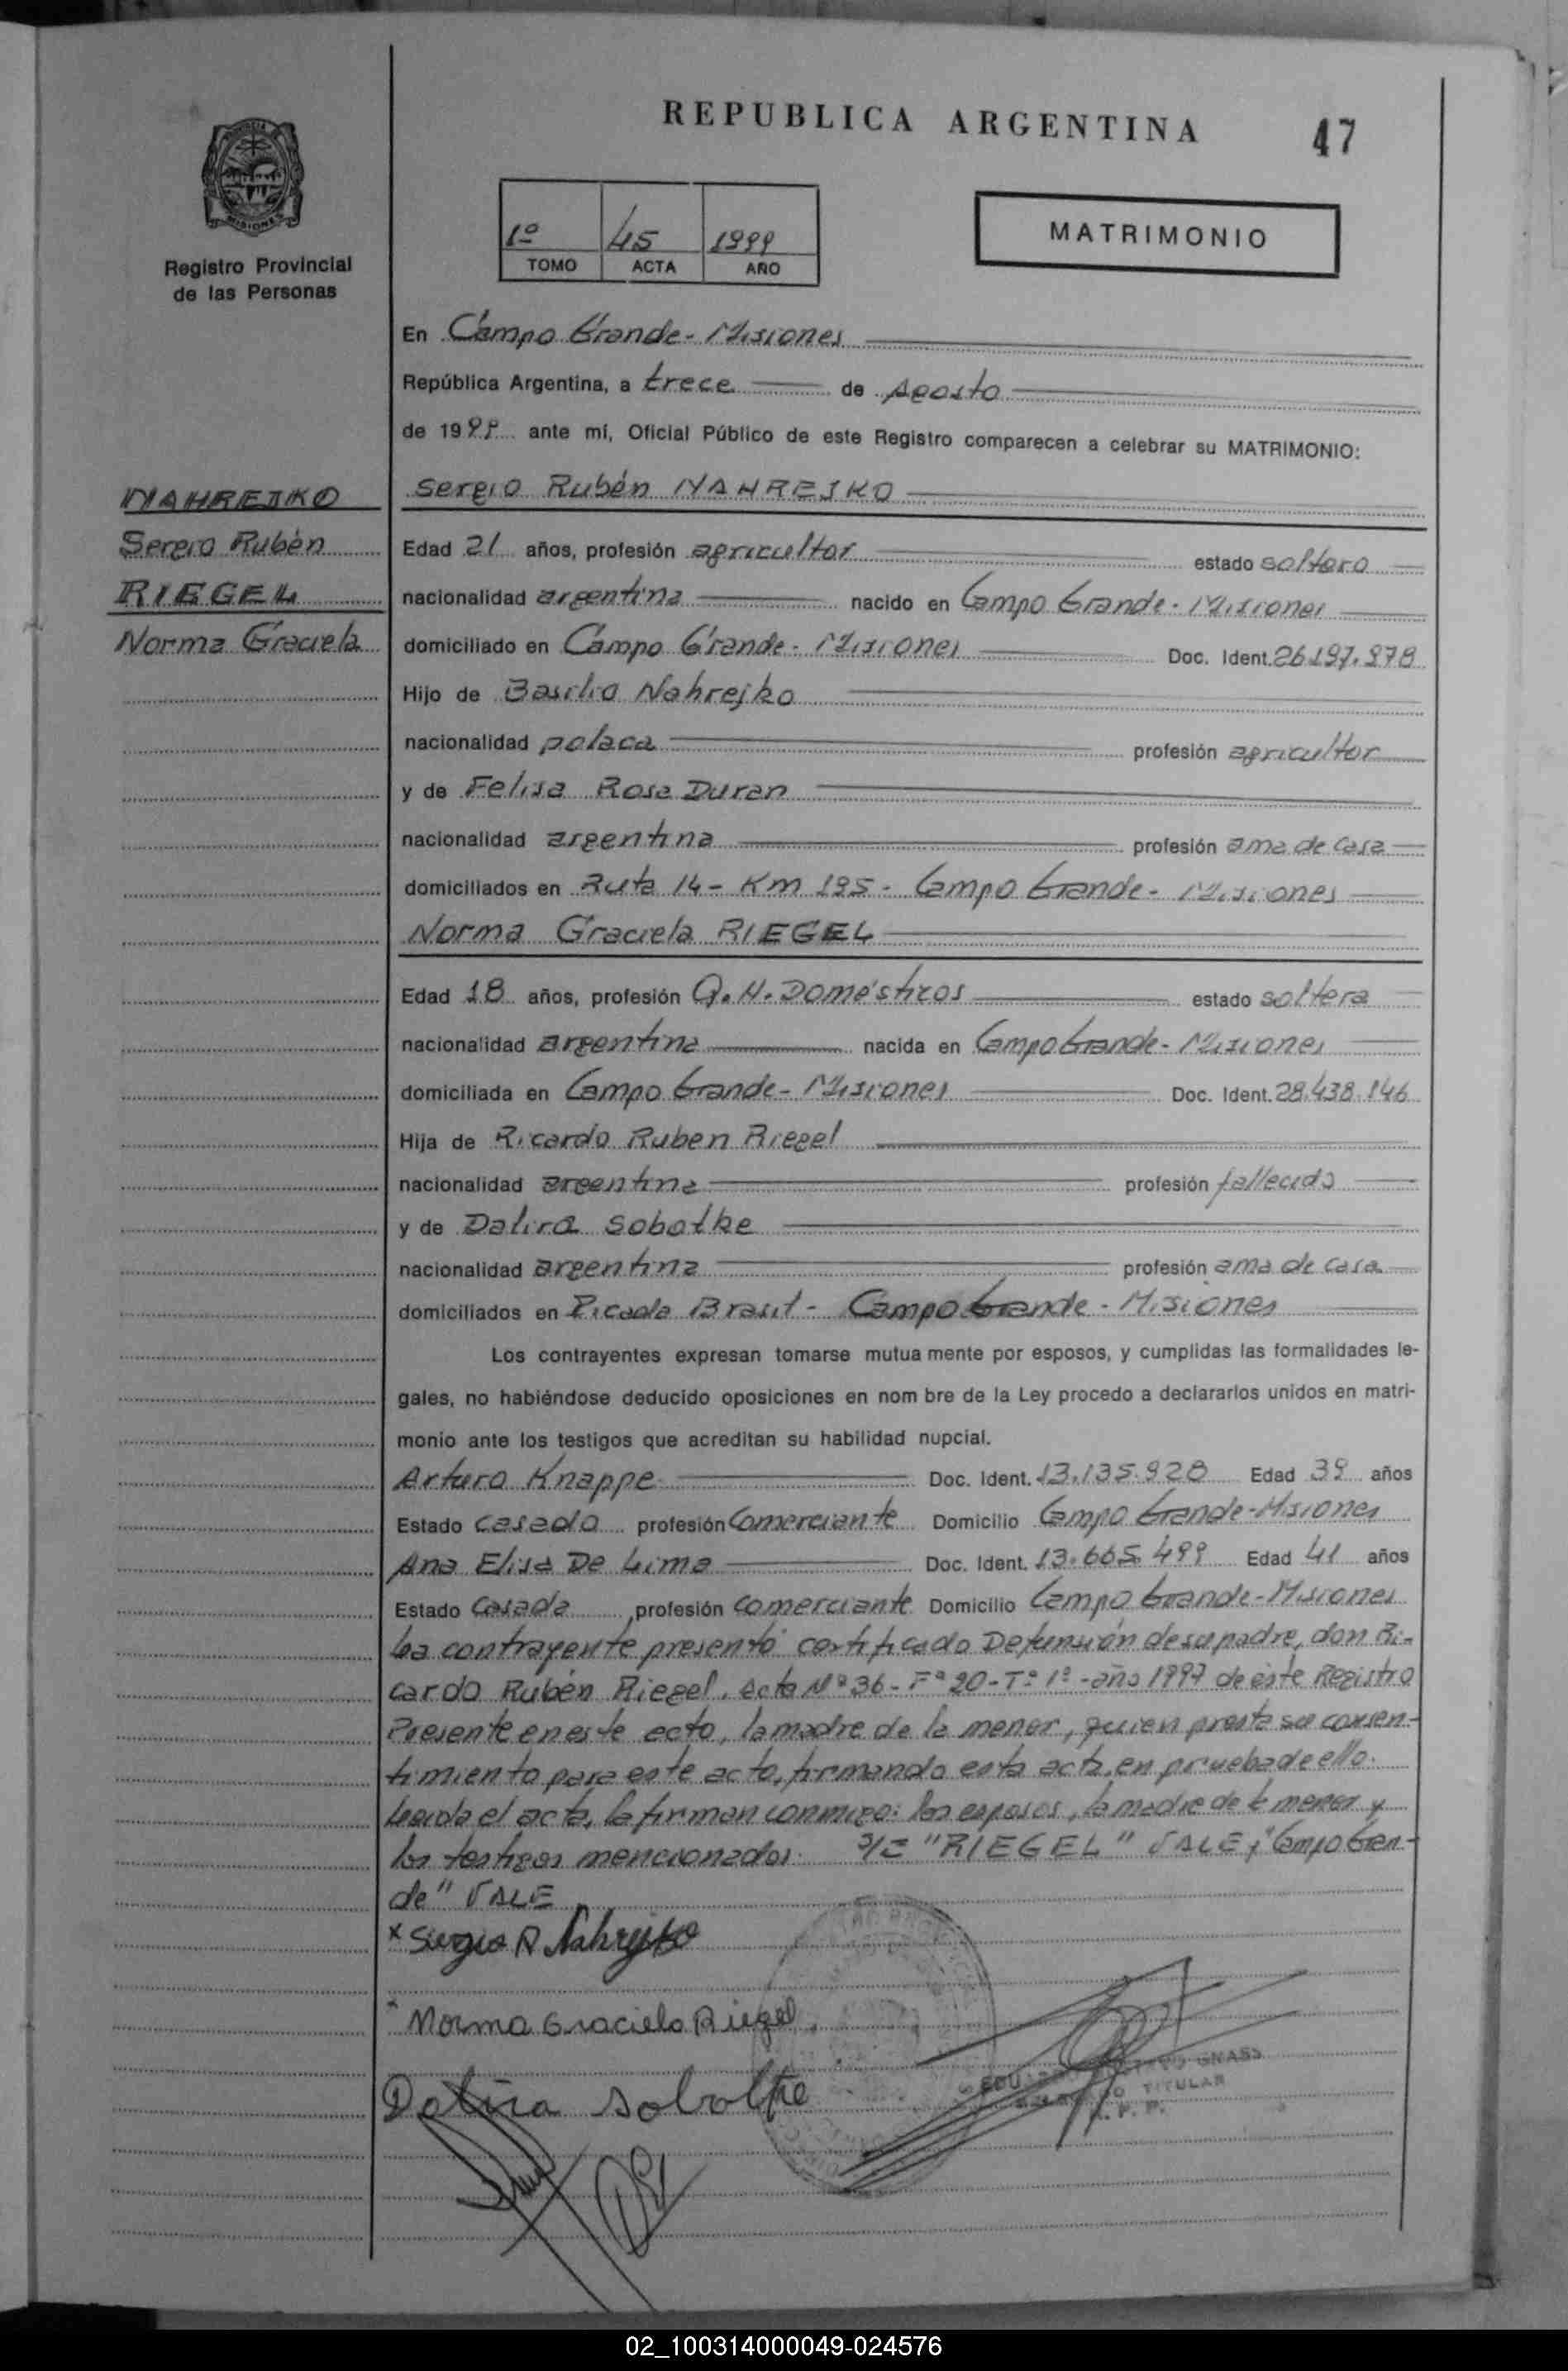 REPUBLICA ARGENTINA
47
1º 45 1999
TOMO ACTA AÑO
MATRIMONIO
Registro Provincial
de las Personas
NAHREJKO
Sergio Rubén
RIEGEL
Norma Graciela
En Campo Grande - Misiones
República Argentina, a trece de Agosto
de 1999 ante mí, Oficial Público de este Registro comparecen a celebrar su MATRIMONIO:
Sergio Rubén NAHREJKO
Edad 21 años, profesión agricultor estado soltero
nacionalidad argentina nacido en Campo Grande - Misiones
domiciliado en Campo Grande - Misiones Doc. Ident. 26.197.978
Hijo de Basilio Nahrejko
nacionalidad polaca profesión agricultor
y de Felisa Rosa Duran
nacionalidad argentina profesión ama de casa
domiciliados en Ruta 14 - Km 195 - Campo Grande - Misiones
Norma Graciela RIEGEL
Edad 18 años, profesión Q.H. Domésticos estado soltera
nacionalidad argentina nacida en Campo Grande - Misiones
domiciliada en Campo Grande - Misiones Doc. Ident. 28.438.146
Hija de Ricardo Ruben Riegel
nacionalidad argentina profesión fallecido
y de Dalira Sobotke
nacionalidad argentina profesión ama de casa
domiciliados en Picada Brasil - Campo Grande - Misiones
Los contrayentes expresan tomarse mutua mente por esposos, y cumplidas las formalidades le-
gales, no habiéndose deducido oposiciones en nom bre de la Ley procedo a declararlos unidos en matri-
monio ante los testigos que acreditan su habilidad nupcial.
Arturo Knappe Doc. Ident. 13.135.928 Edad 39 años
Estado casado profesión Comerciante Domicilio Campo Grande - Misiones
Ana Elisa De Lima Doc. Ident. 13.665.499 Edad 41 años
Estado Casada profesión comerciante Domicilio Campo Grande - Misiones
La contrayente presentó certificado Defunsión de su padre, don Ri-
cardo Rubén Riegel, acta Nº 36 - Fº 20 - Tº 1º - año 1997 de éste Registro
Presente en este acto, la madre de la menor, quien presta su consen-
timiento para este acto, firmando esta acta, en prueba de ello.
Leida el acta, la firman conmigo: los esposos, la madre de la menor y
los testigos mencionados. S/= "RIEGEL" VALE, "Campo Gran-
de" VALE
x Sergio R Nahrejko
x Norma Graciela Riegel
Dalira Sobotke
GNASS
TITULAR
R. P. P.
02_100314000049-024576